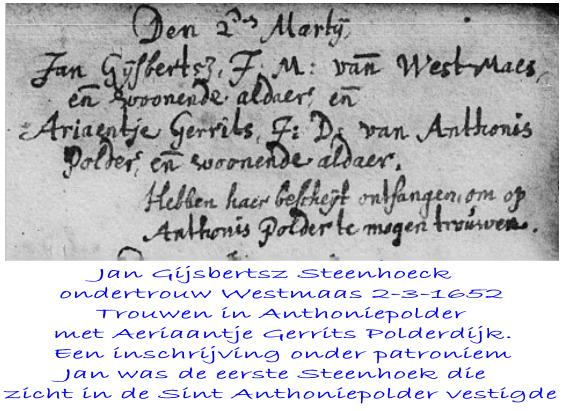 Den 2den Martij,
Jan Gijsbertsz, J. M: van WestMaes,
en woonende aldaer, en
Ariaentje Gerrits, J: D: van Anthonis
Polder, en woonende aldaer.
Hebben haer bescheijt ontfangen, om op
Anthonis Polder te mogen trouwen.
Jan Gijsbertsz Steenhoeck
ondertrouw Westmaas 2-3-1652
Trouwen in Anthoniepolder
met Aeriaantje Gerrits Polderdijk.
Een inschrijving onder patroniem
Jan was de eerste Steenhoek die
zicht in de Sint Anthoniepolder vestigde